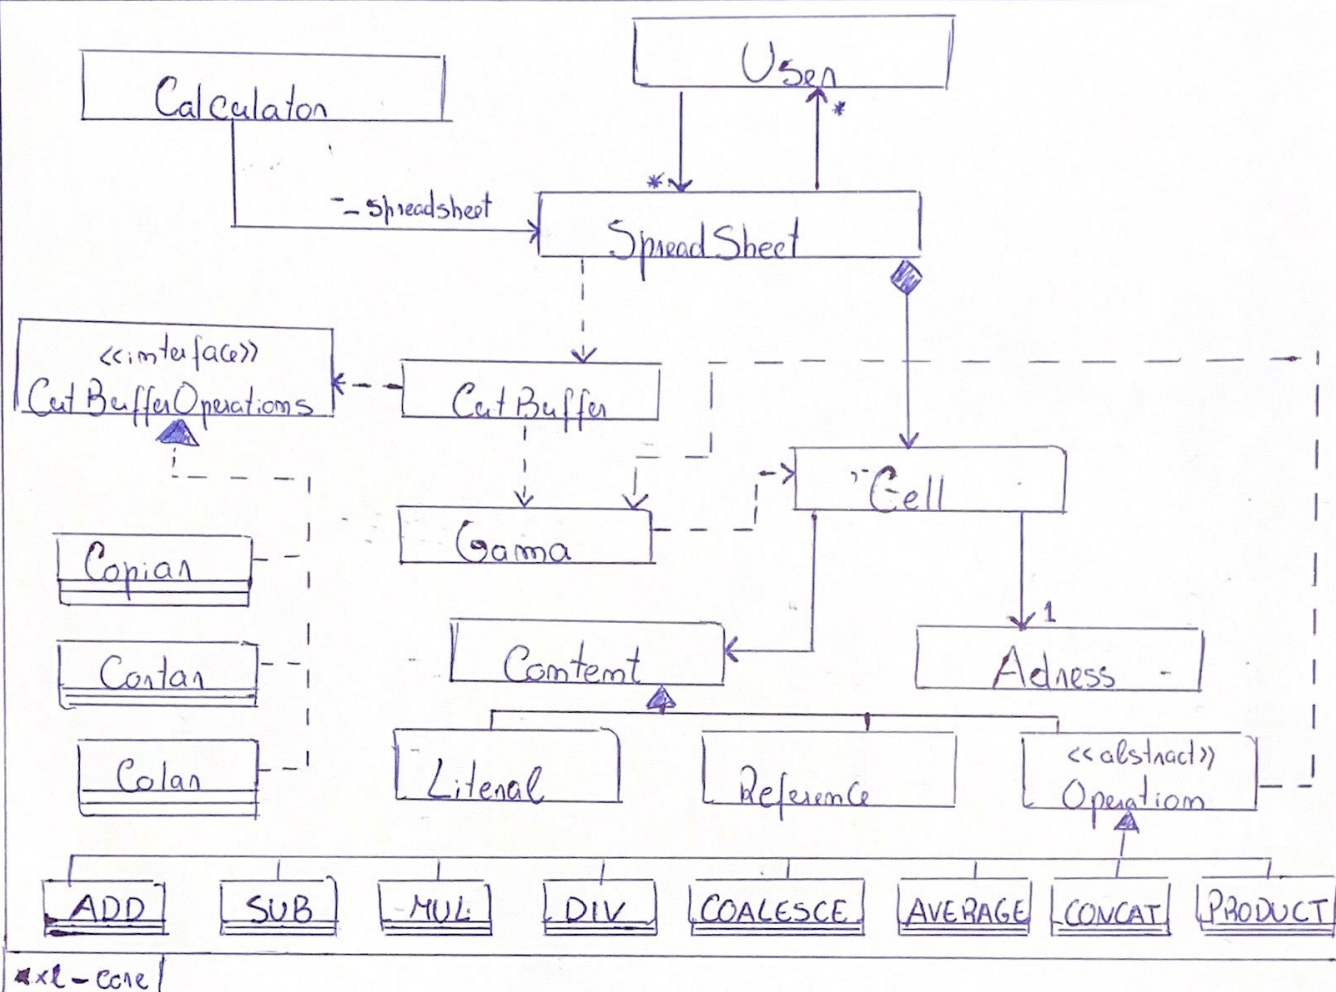 User
Calculator
*
-_spreadsheet
*
SpreadSheet
<<interface>>
CutBufferOperations
CutBuffer
Cell
Gama
Copiar
1
Content
Adress
Cortar
Colar
Literal
Reference
<<abstract>>
Operation
ADD SUB MUL DIV COALESCE AVERAGE CONCAT PRODUCT
xxl-core